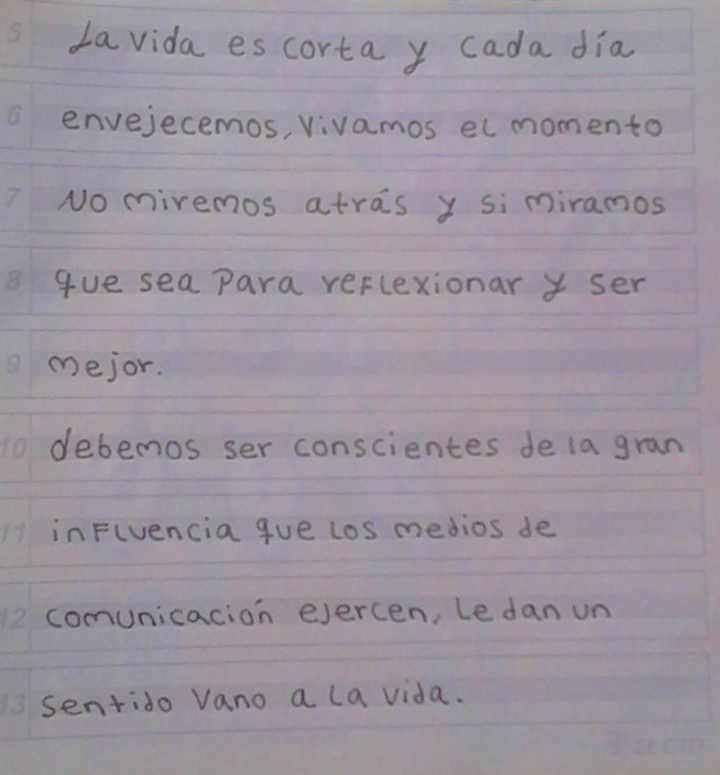 5 La vida es corta y cada día
6 envejecemos, vivamos el momento
7 No miremos atrás y si miramos
8 que sea para reflexionar y ser
9 mejor.
10 debemos ser conscientes de la gran
11 influencia que los medios de
12 comunicación ejercen, le dan un
13 sentido vano a la vida.
EL CID